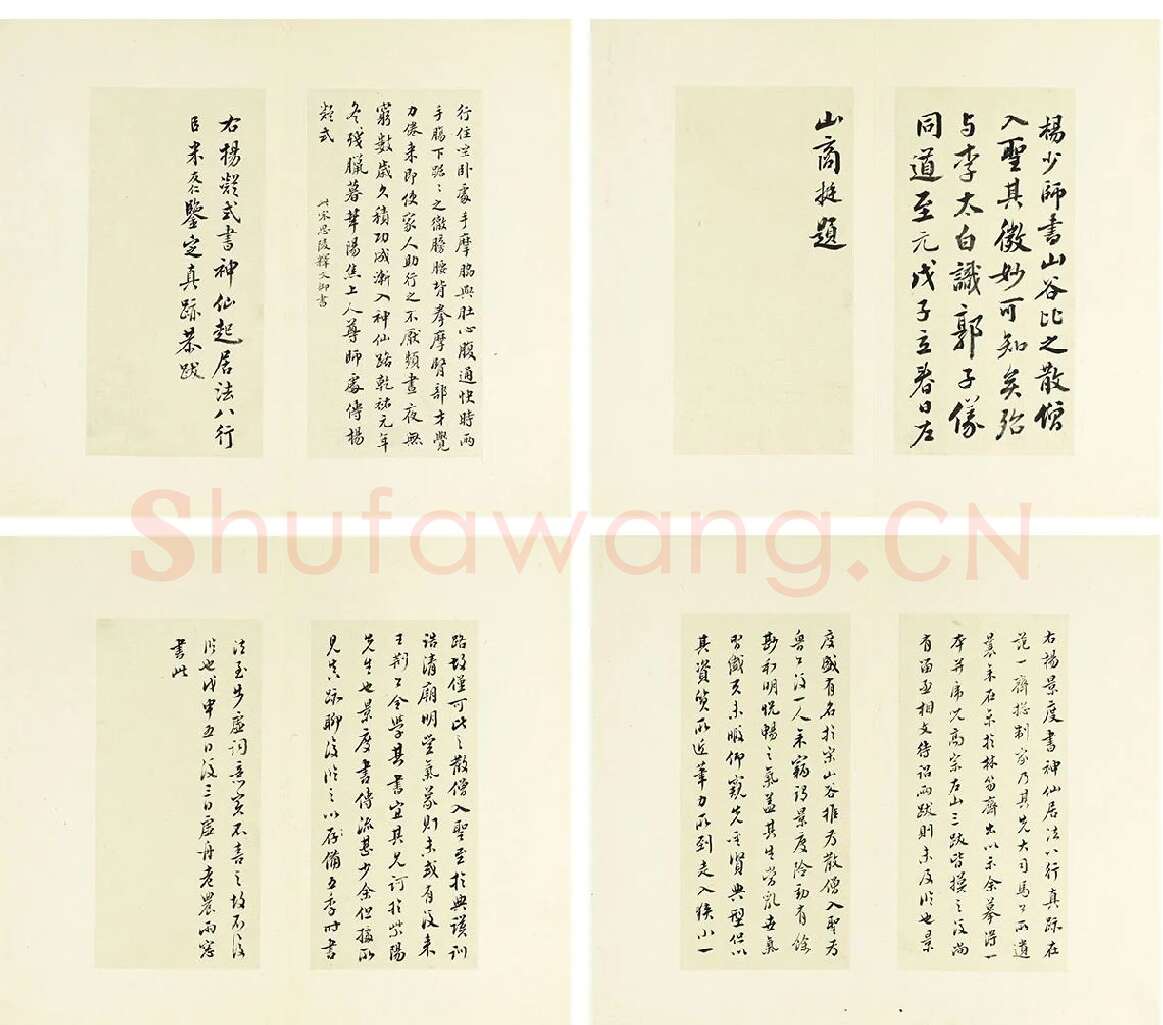 行住坐卧處手摩脇與肚心腹通快時兩
手腸下踞〻之徹膀腰背拳摩腎部才覺
力倦來即使家人助行之不厭頻晝夜無
窮數歲久積功成漸入神仙路乾祐元年
冬殘臘暮華陽焦上人尊師處傳楊
凝式
此宋思陵釋文御書
右楊凝式書神仙起居法八行
臣米友仁鑒定真跡恭跋
楊少師書山谷比之散僧
入聖其徽妙可知矣殆
与李太白識郭子儀
同道至元戊子立春日左
山商挺題
右楊景度書神仙居法八行真跡在
范一齋總制家乃其先大司馬公所遺
曩年在京於林笏齋出以示余摹得一
本并高宗左山三跋皆摹之後尚
有留孟相文待詔兩跋則未及臨也景
度盛有名於宋山谷推為散僧入聖為
魯公後一人余竊謂景度險勁有餘
和明悅暢之氣蓋其生當亂世氣
習感召未暇仰窺先聖賢典型但以
其資質所近筆力所到走入狹小一
路故僅可比之散僧入聖至於典謨訓
誥清廟明堂氣象則未或有後來
王荊公全學其書宜其見訶於紫陽
先生也景度書傳流甚少余但據所
見真跡聊復臨之以存備五季時書
法至步虛詞意實不喜之故不復
臨也戊申五日後三日虛舟老農雨窗
書此
Shufawang.CN